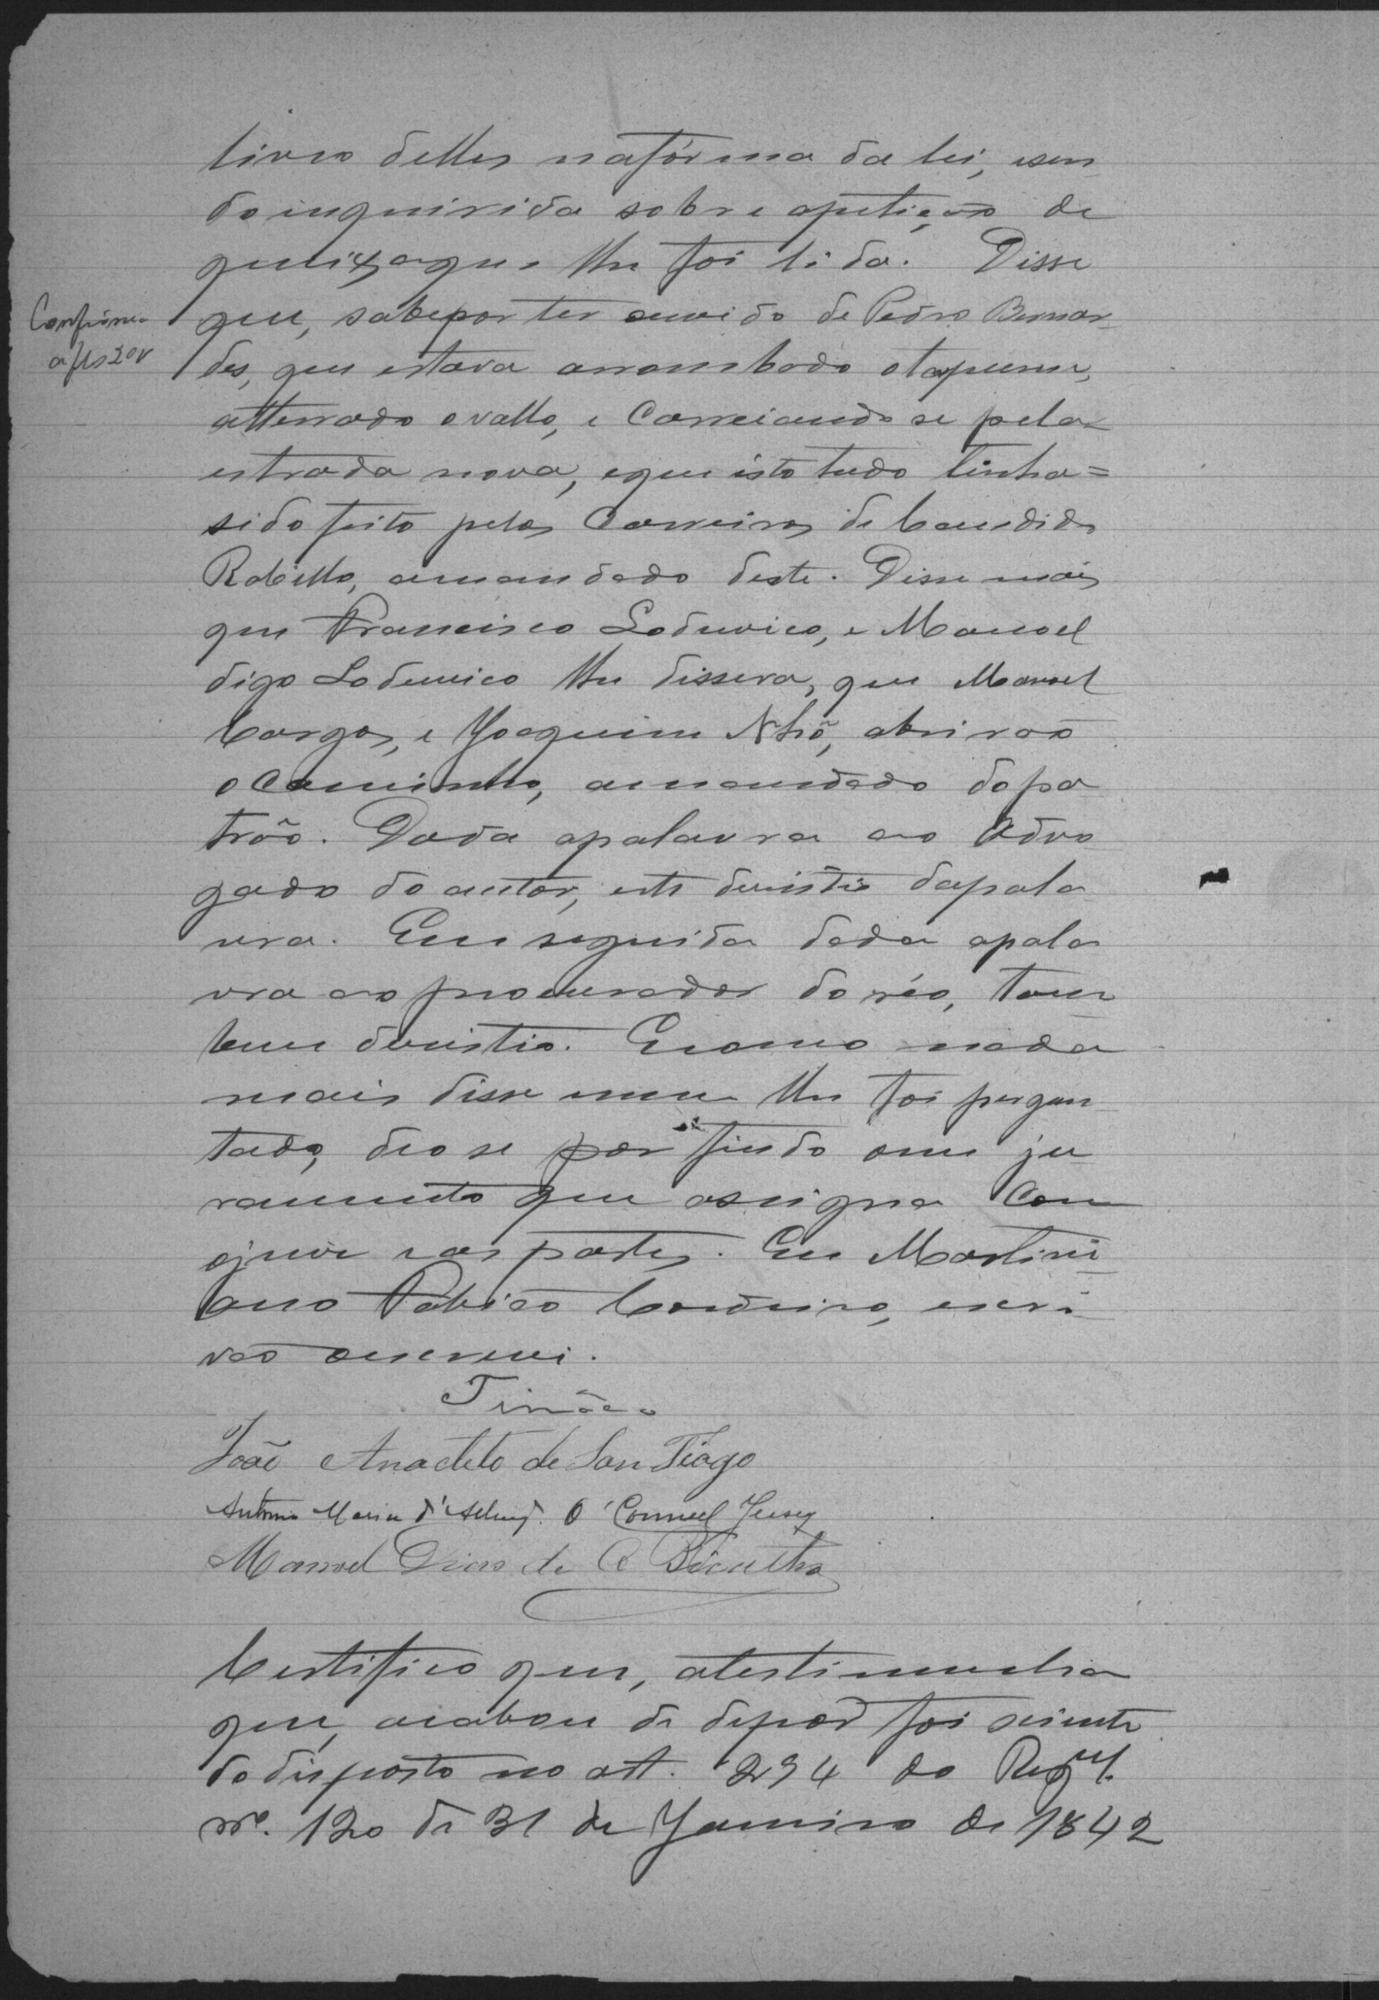 livro delles na fórma da lei, e sen
do inquirida sobre a petição de
queixa que lhe foi lida. Disse
que, sabe por ter ouvido de Pedro Bernar
Confórme
a fls 20v
des, que estava arrombado o tapume,
atterrado o vallo, e Carreiando se pela
estrada nova, e que isto tudo tinha=
sido feito pelos Carreiros de Candido
Rabello, a mandado deste. Disse mais
que Francisco Loduvico, e Manoel
digo Loduvico lhe dissera, que Manoel
Cargos, e Joaquim Nhô, abrirão
o Caminho, a mandado do pa
trão. Dada a palavra ao Advo
gado do autor, este desistio da pala
vra. Em seguida dada a pala
vra ao procurador do réo, tam
bem desistio. E como nada
mais disse nem lhe foi pergun
tado, deo se por findo seu ju
ramento que assigna Com
o juiz e as partes. Eu Martini
ano Cordeiro, escri
vão escrevi.
João Anacleto de San Tiago
Antonio Maria d' O' Connel Jersey
Manoel Dias de
Certifico que, a testimunha
que, acabou de depor foi sciente
do disposto no art. 294 do Regul.
nº. 120 de 31 de Janeiro de 1842